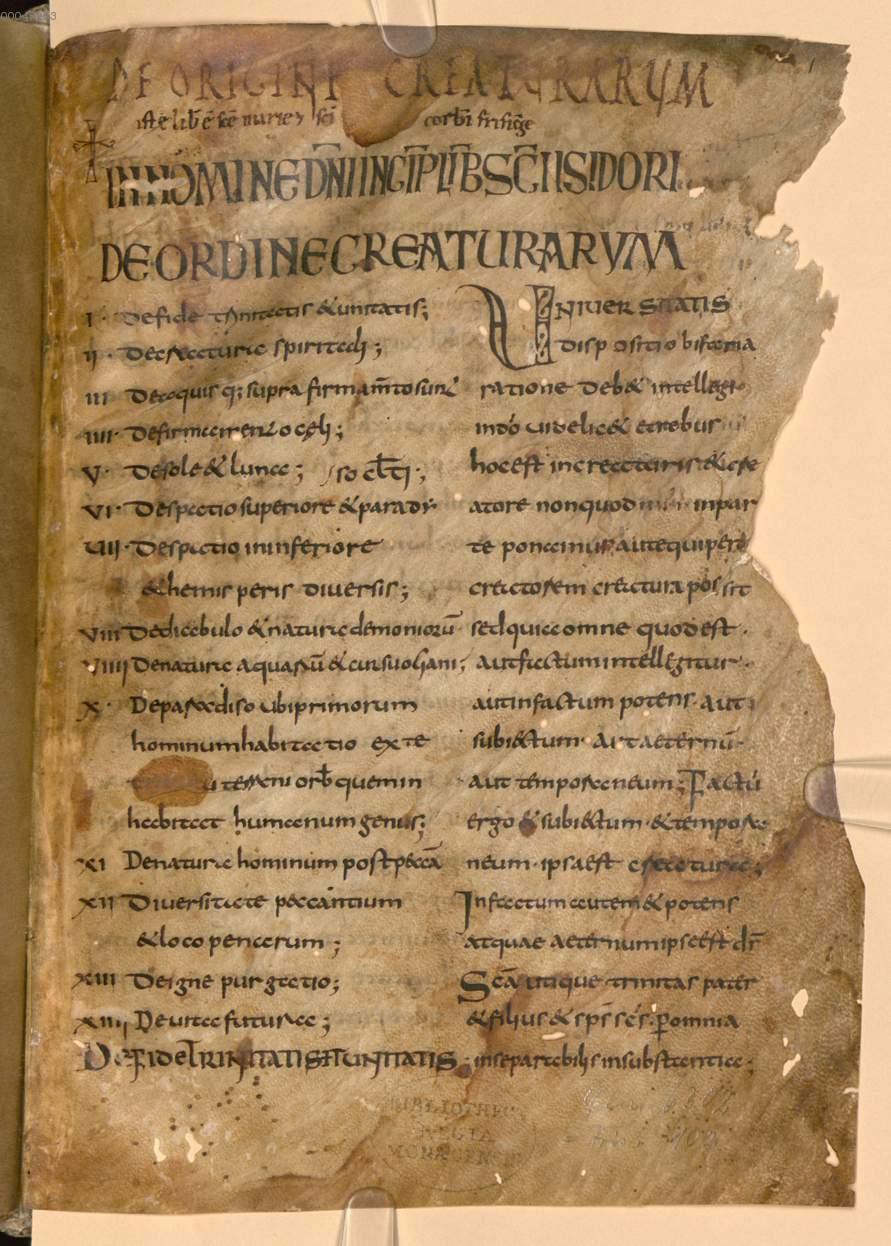 DE ORIGINE CREATURARUM
iste lib̄ ē sc̄e marie & sc̄i corbī frisīge
IN NOMINE DN̄I INCĪPL LĪB SC̄I ISIDORI
DE ORDINE CREATURARUM
I· De fide trinitatis & unitatis;
II· De creatura spiritali;
III De aquis q; supra firmam̄to sunt
IIII· De firmamento celi;
V· De sole & luna;
VI· De spatio superiore & paradi
VII· De spatio ininferiore
& hemis peris diversis;
VIII De diabulo & natura demoniorū
VIIII De natura aquarū & cursu oceani;
X· De paradiso ubi primorum
hominum habitatio ex te
terreni orb̄ quem in
habitat humanum genus;
XI De natura hominum post peccā
XII Diversitate peccantium
& loco penarum;
XIII De igne purgatio;
XIIII De vita futura;
De fide TRINITATIS ET UNITATIS·
UNIVERSITATIS
Dispositio bifaria
ratione deb& intellegi
videlic& et rebus
hoc est in creaturis & cre
atore non quod inpar
te ponamus aut equiperē
creatorem creatura possit
sed quia omne quod est·
aut factum intellegitur·
aut infactum potens· aut
subiectum· aut aeternū·
aut temporaneum; Factū
ergo & subiectum· & tempora
neum· ipsa est creatura;
Infactum autem & potens
atquae aeternum ipse est ds̄
Sc̄a utique trinitas pater
& filius & sps̄ sc̄s· ꝑ omnia
inseparabilis in substantia;
BIBLIOTHECA
REGIA
MONACENSIS